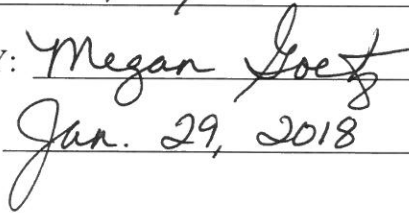 Y: Megan Goetz
Jan. 29, 2018